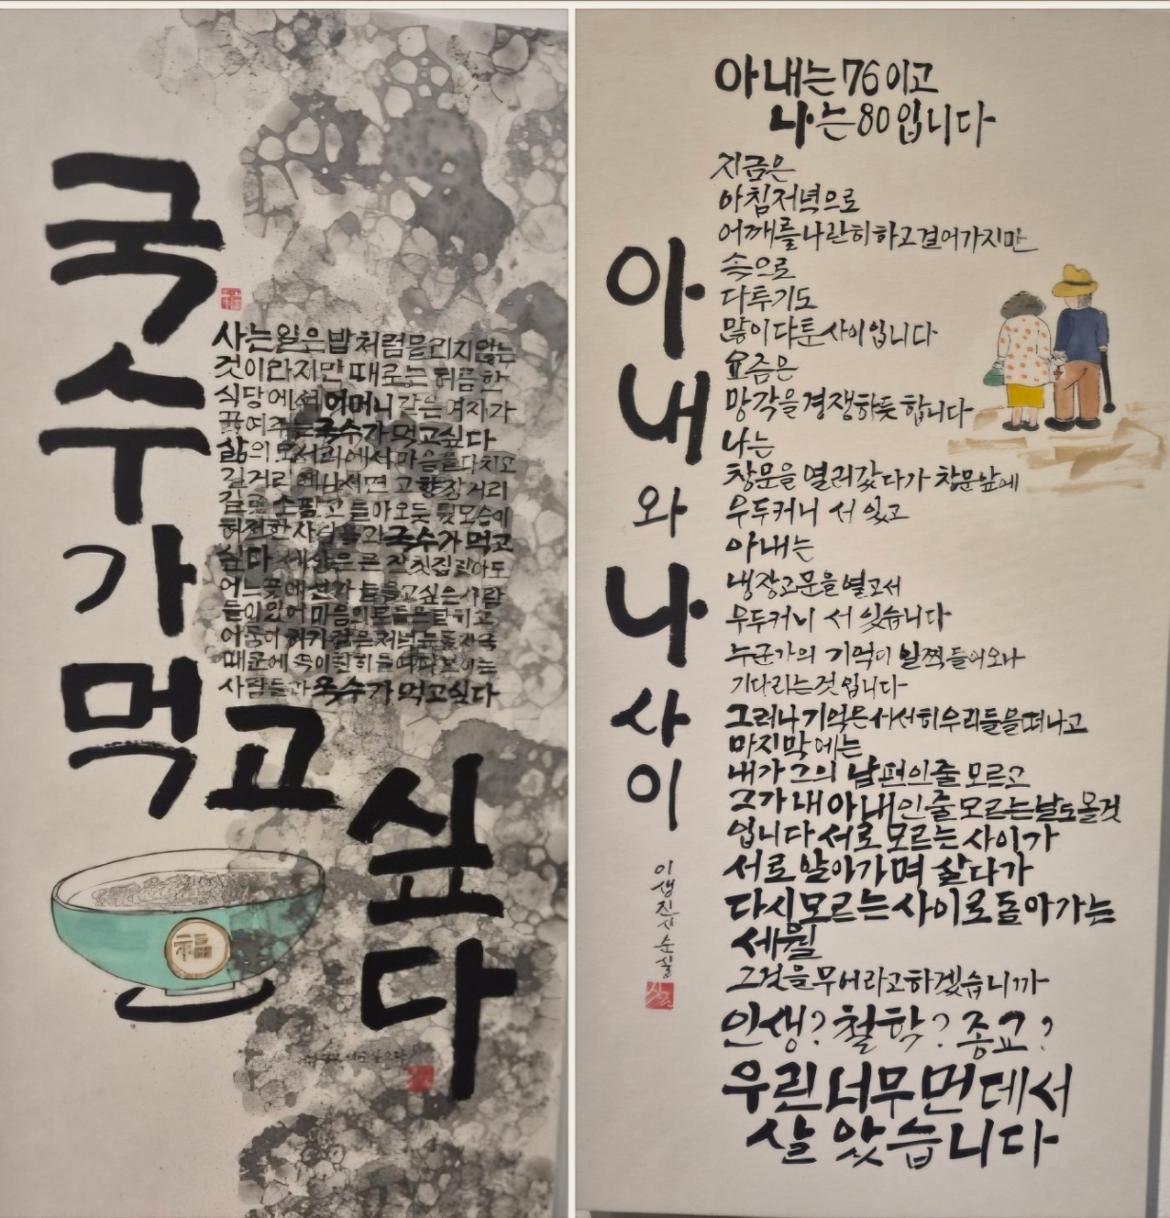 국수가 먹고 싶다
사는 일은 밥처럼 물리지 않는
것이라지만 때로는 허름한
식당에서 어머니 같은 여자가
끓여주는 국수가 먹고 싶다
삶의 모서리에서 마음을 다치고
길거리에 나서면 고향 장거리
길로 소 팔고 돌아오듯 뒷모습이
허전한 사람들과 국수가 먹고
싶다 세상은 큰 잔칫집 같아도
어느 곳에선가 늘 울고 싶은 사람
들이 있어 마음의 문들은 닫히고
어둠이 허기 같은 저녁 눈물자국
때문에 속이 훤히 들여다보이는
사람들과 국수가 먹고 싶다
아내와 나 사이
아내는 76이고
나는 80입니다
지금은
아침저녁으로
어깨를 나란히 하고 걸어가지만
속으로
다투기도
많이 다툰 사이입니다
요즘은
망각을 경쟁하듯 합니다
나는
창문을 열러 갔다가 창문 앞에
우두커니 서 있고
아내는
냉장고 문을 열고서
우두커니 서 있습니다
누군가의 기억이 일찍 들어오나
기다리는 것입니다
그러나 기억은 서서히 우리들을 떠나고
마지막에는
내가 그의 남편인 줄 모르고
그가 내 아내인 줄 모르는 날도 올 것
입니다 서로 모르는 사이가
서로 알아가며 살다가
다시 모르는 사이로 돌아가는
세월
그것을 무어라고 하겠습니까
인생? 철학? 종교?
우린 너무 먼 데서
살았습니다
이생진 시 순실